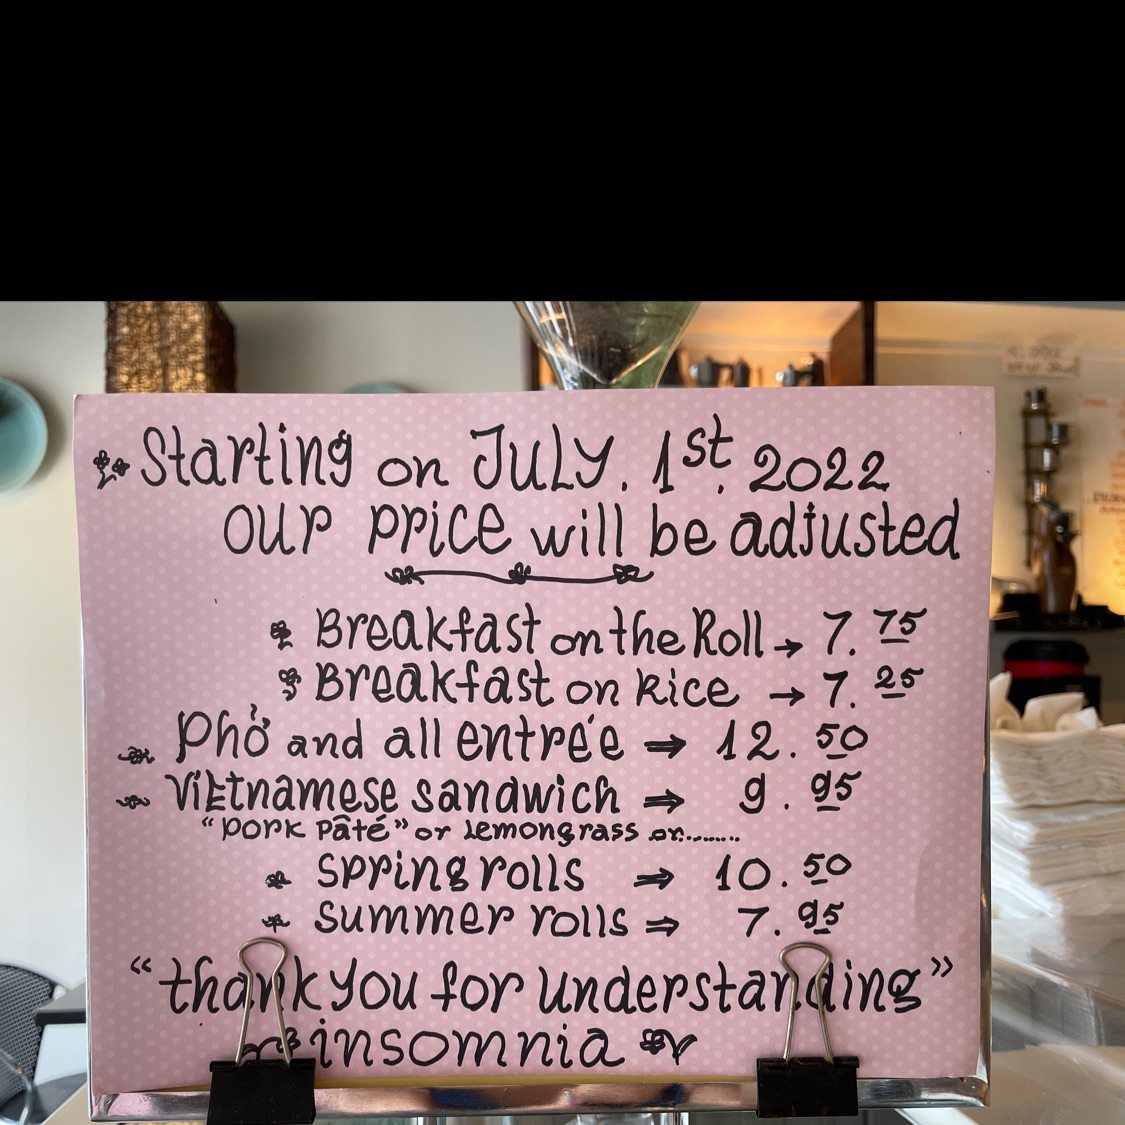 Starting on JULY. 1st. 2022
our price will be adjusted
Breakfast on the Roll → 7.75
Breakfast on Rice → 7.25
Phở and all entrée ⇒ 12.50
Vietnamese sandwich ⇒ 9.95
"Pork Pâté" or Lemongrass or........
Spring rolls ⇒ 10.50
Summer rolls ⇒ 7.95
"thank you for understanding"
insomnia